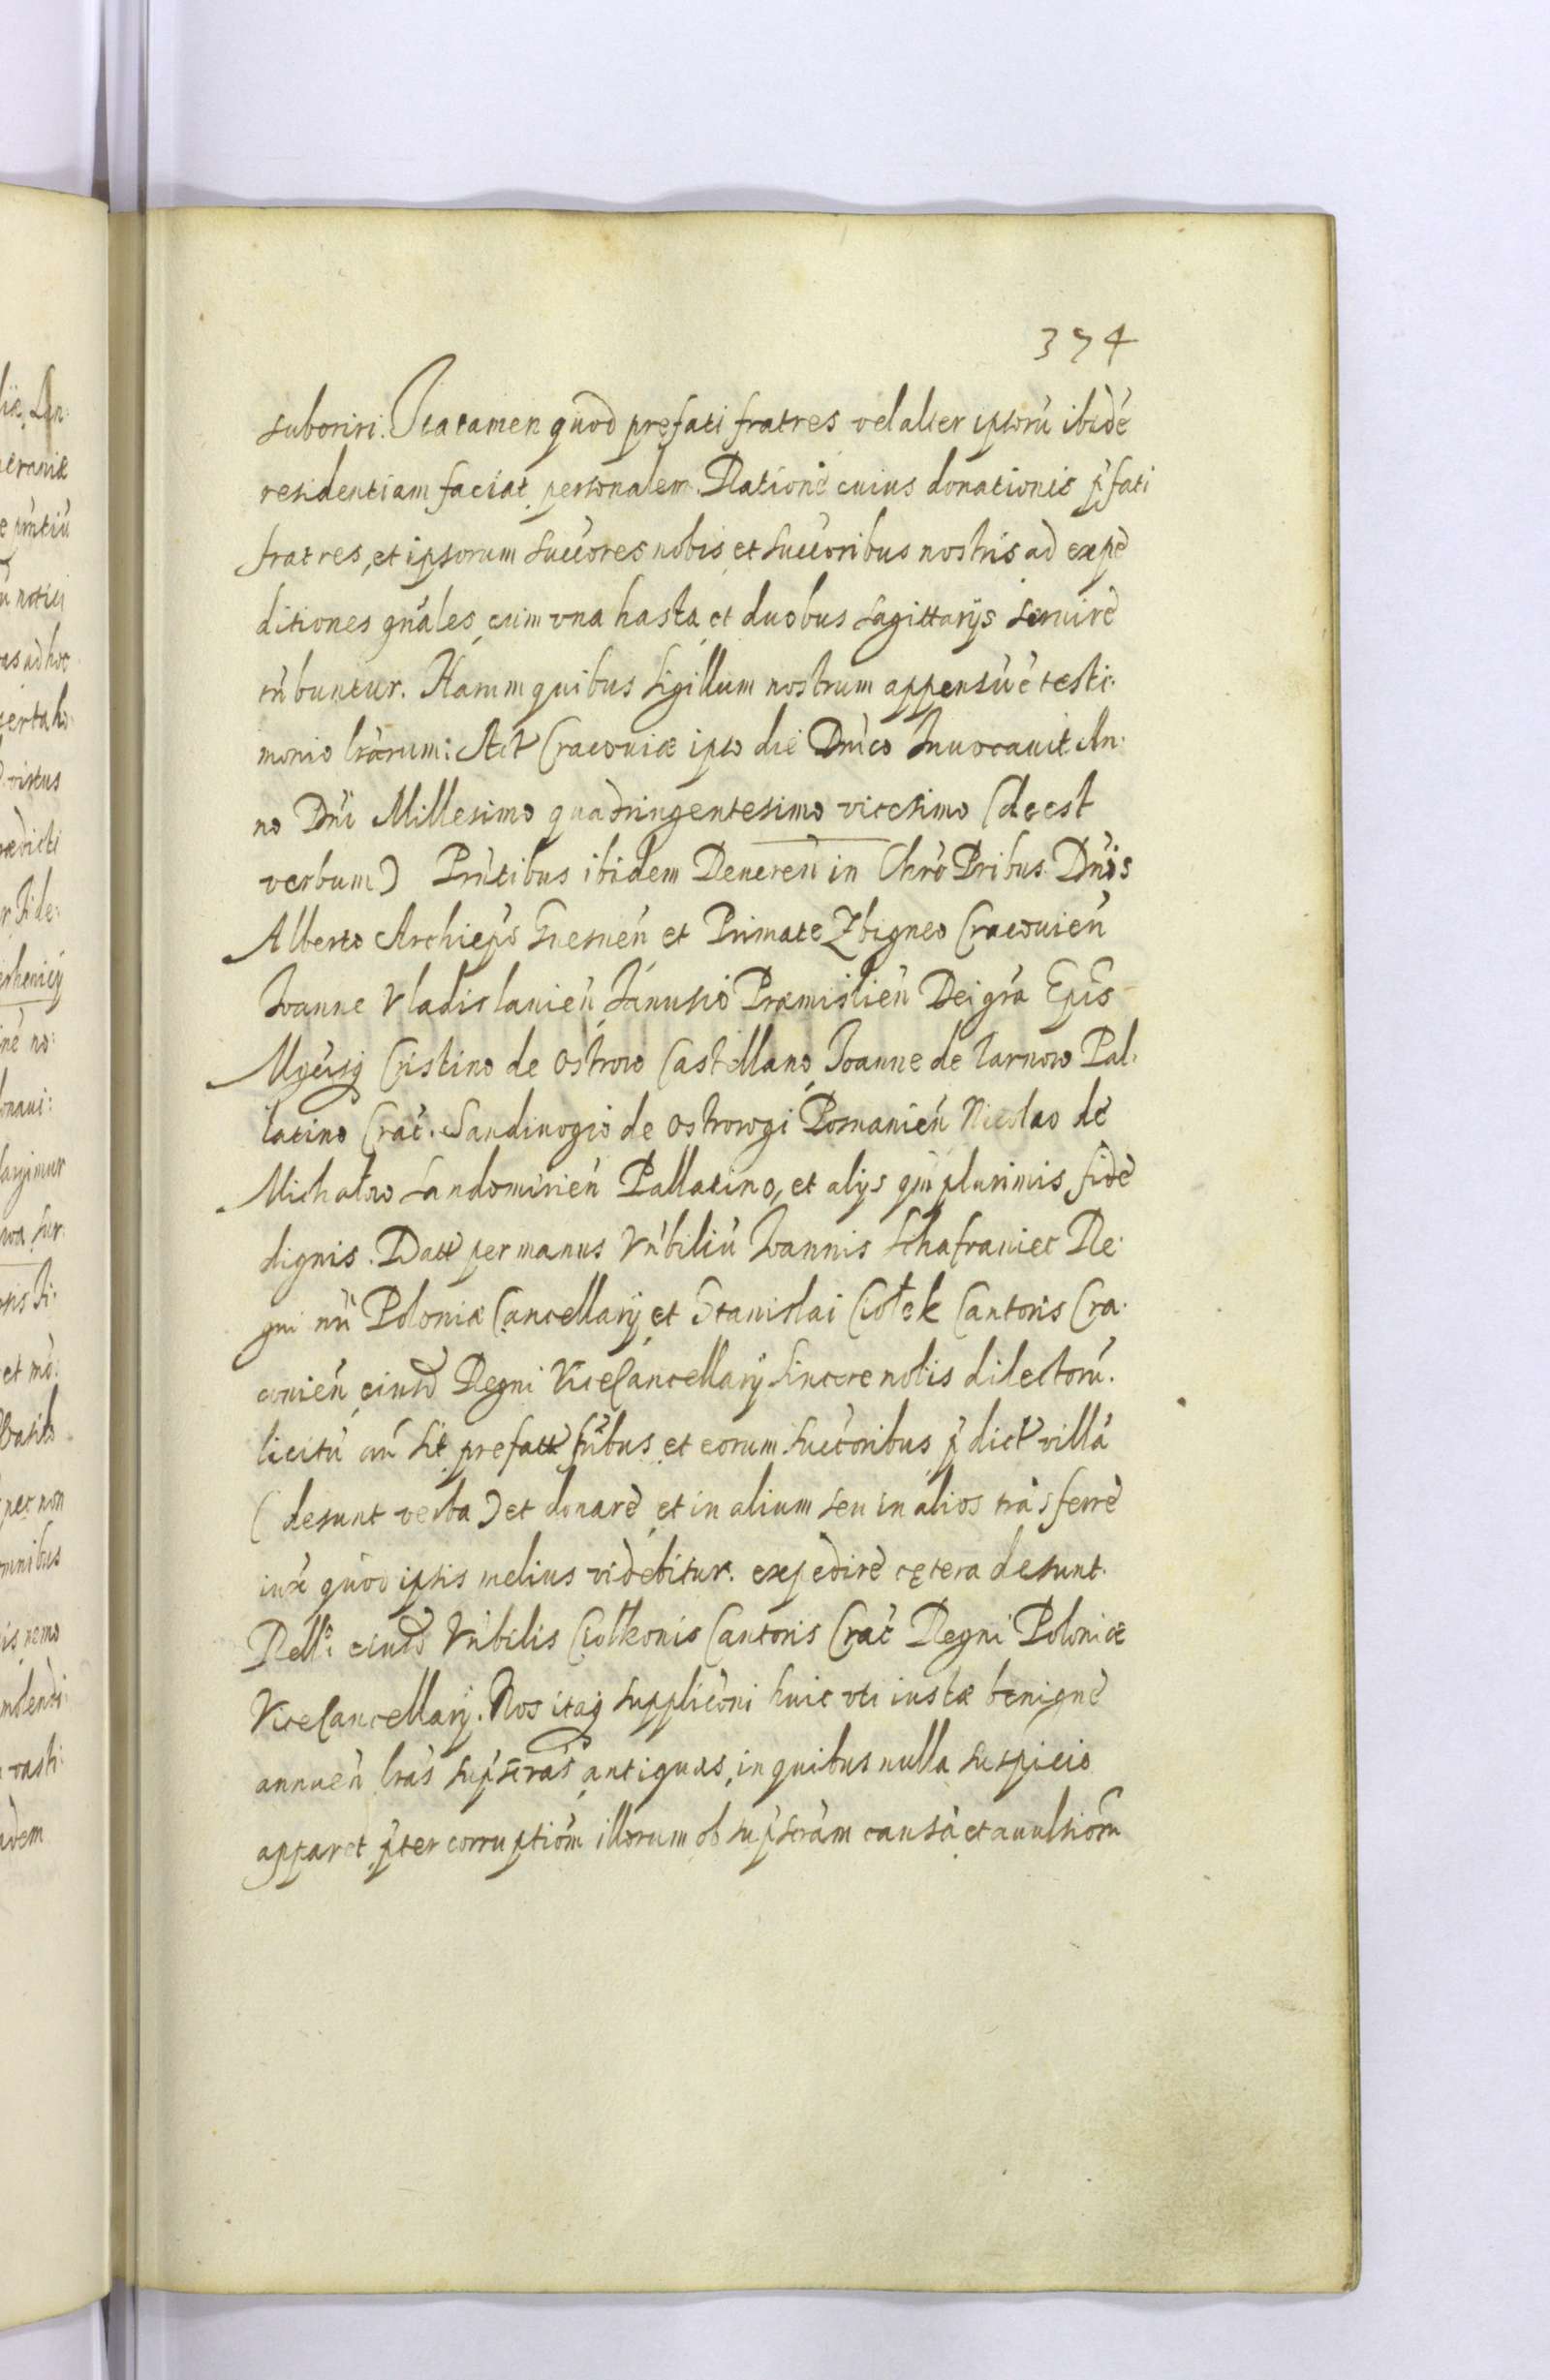 374
suboriri. Ita tamen quod prefati fratres vel alter ipsorũ ibidẽ
residentiam faciat personalem. Ratione cuius donationis p̃fati
fratres, et ipsorum succ̃ores nobis et succ̃oribus nostris ad expe
ditiones gñales cum vna hasta et duobus sagittarijs seruire
tñbuntur. Harum quibus Sigillum nostrum appensũ ẽ testi.
monio lr̃arum: Act Cracouiæ ipso die Dñico Inuocauit An.
no Dñi Millesimo quadringentesimo vicesimo (deest
verbum) Pñtibus ibidem Reueren̄ in Chro Pribus Dñis
Alberto Archiepõ Gnesneñ et Primate Zbigneo Cracouieñ
Ioanne Vladislauieñ Janusio Præmislieñ Dei gr̃a Epis
Cristino de Ostrow Castellano, Ioanne de Tarnow Pal.
latino Crac̃. Sandiuogio de Ostrorogi Posnanieñ Nicolao de
Michałow Sandomirieñ Pallatino, et alijs qm̃ plurimis fide
dignis. Datt per manus Vñbiliũ Ioannis Schafraniec Re.
gni nr̃i Poloniæ Cancellarij et Stanislai Ciołek Cantoris Cra.
couieñ eiusd Regni ViceCancellarij sincere nobis dilectorũ.
licitũ aũ sit prefatt fr̃ibus et eorum succ̃oribus p̃dict villã
(desunt verba) et donare et in alium seu in alios trãsferre
iux̃ quod ipsis melius videbitur. expedire cętera desunt.
Rello eiusd Vñbilis Ciołkonis Cantoris Crac̃ Regni Poloniæ
ViceCancellarij. Nos itaq supplic̃oni huic vti iustæ benigne
annueñ lr̃as sup̃scr̃as antiquas, in quibus nulla suspicio
apparet p̃ter corruptiõm illorum ob sup̃scr̃am causã et auulsiõm